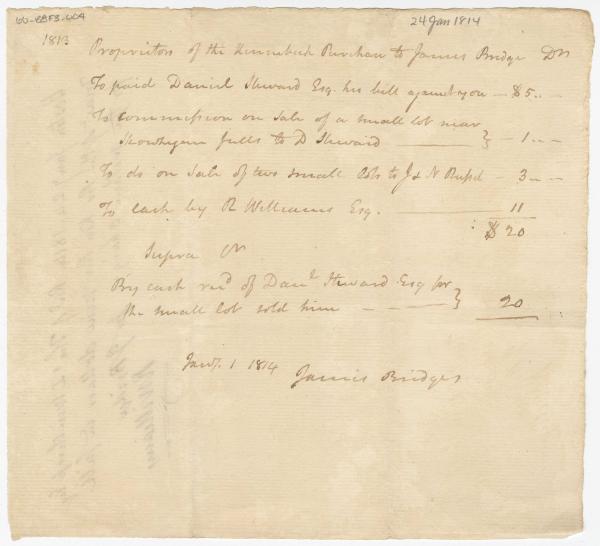 24 Jan 1814
1813
Proprietors of the Kennebeck Purchase to James Bridge Dr
To paid Daniel Steward Esq. his bill against you — $5 .. —
To commission on sale of a small lot near
Skowhegan falls to D Steward — } — 1 .. —
To do on sale of two small lots to J & N — 3 .. —
To cash by R Williams Esq. — 11
$ 20
Supra Cr
By cash recd of Danl Steward Esq for
the small lot sold him — } 20
Jany. 1 1814 James Bridge